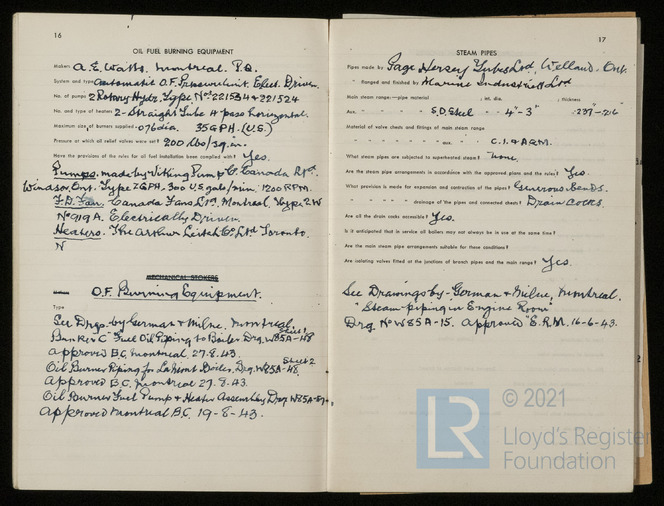 16
OIL FUEL BURNING EQUIPMENT
Makers A.E. Watts. Montreal. P.Q.
System and type Automatic O.F. Pressure Unit. Elect. Driven.
No. of pumps 2 Rotary Hydr. Type Nos 221534 & 221524
No. and type of heaters 2 - Straight Tube 4 pass horizontal.
Maximum size of burners supplied .076 dia. 35 GPH. (U.S.)
Pressure at which oil relief valves were set? 200 lbs/sq.in.
Have the provisions of the rules for oil fuel installation been complied with? Yes.
Pumps. made by Viking Pump Co. Canada Ltd.
Windsor, Ont. Type 2GPH. 300 U.S. gals/min. 1200 RPM.
F.D. Fan. Canada Fans Ltd. Montreal Type 2W
No 919 A. Electrically Driven.
Heaters. The Arthur Leitch Co. Ltd Toronto.
N
MECHANICAL STOKERS
O.F. Burning Equipment.
Type
See Drgs. by German & Milne. Montreal
Sheet 1
Bunker "C" Fuel Oil Piping to Boiler Drg. W85A-48
Approved B.C. Montreal 27.8.43.
Sheet 2
Oil Burner Piping for Boiler, Drg. W85A-48.
Approved B.C. Montreal 27.8.43.
Oil Burner Fuel Pump & Heater Assembly Drg W85A-
Approved Montreal B.C. 19-8-43.
17
STEAM PIPES
Pipes made by Page Hersey Tubes Ltd, Welland, Ont.
" flanged and finished by Marine Industries Ltd
Main steam range:—pipe material ; int. dia. ; thickness
Aux. " " " " S.D. Steel " " 4" - 3" " .237"-.216"
Material of valve chests and fittings of main steam range
" " " " " aux. " " C.I. & A.G.M.
What steam pipes are subjected to superheated steam? None.
Are the steam pipe arrangements in accordance with the approved plans and the rules? Yes.
What provision is made for expansion and contraction of the pipes? Generous bends.
" " " " drainage of the pipes and connected chests? Drain cocks.
Are all the drain cocks accessible? Yes.
Is it anticipated that in service all boilers may not always be in use at the same time?
Are the main steam pipe arrangements suitable for these conditions?
Are isolating valves fitted at the junctions of branch pipes and the main range? Yes.
See Drawings by - German & Milne, Montreal.
"Steam piping in Engine Room"
Drg. No W85A-15. Approved E.R.M. 16-6-43.
LR © 2021
Lloyd's Register
Foundation